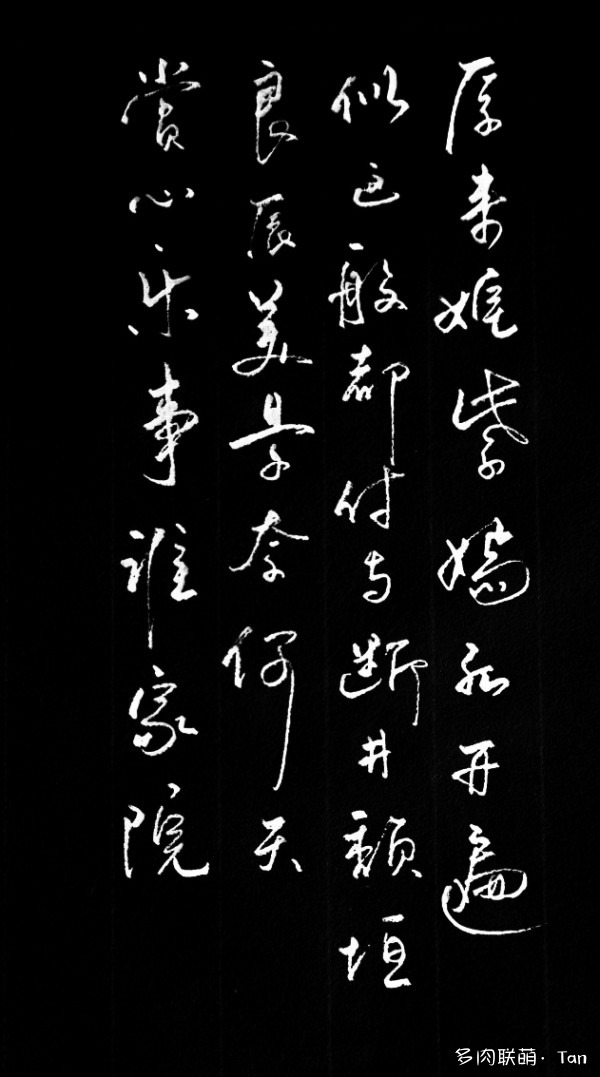 原来姹紫嫣红开遍
似这般都付与断井颓垣
良辰美景奈何天
赏心乐事谁家院
多肉联萌·Tan